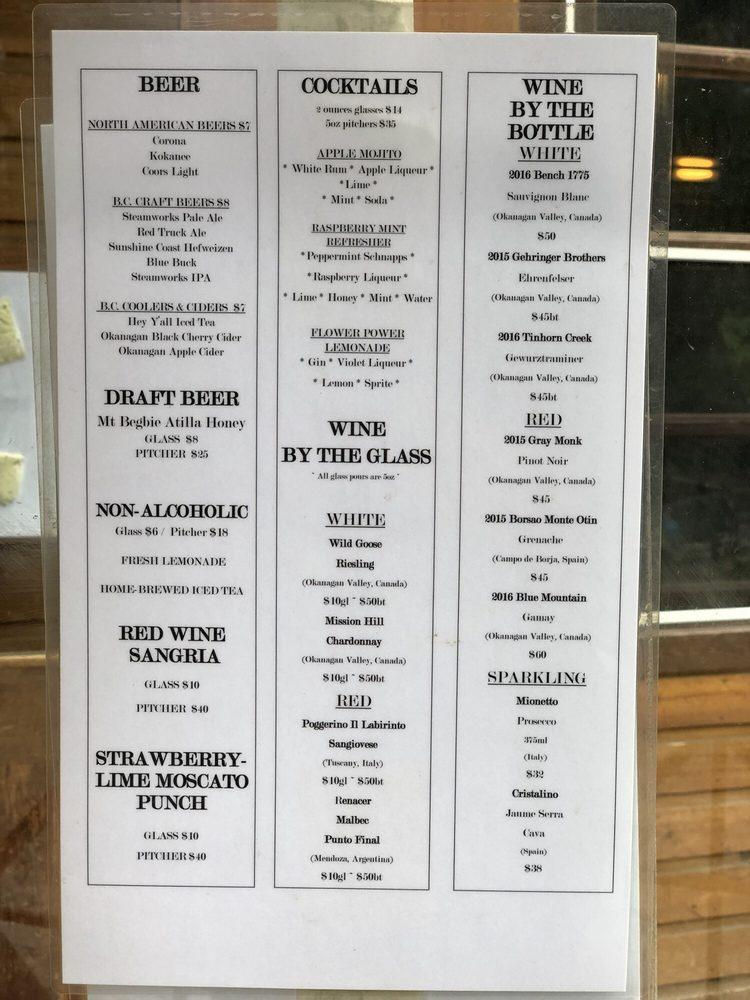 BEER
NORTH AMERICAN BEERS $7
Corona
Kokanee
Coors Light
B.C. CRAFT BEERS $8
Steamworks Pale Ale
Red Truck Ale
Sunshine Coast Hefweizen
Blue Buck
Steamworks IPA
B.C. COOLERS & CIDERS $7
Hey Y'all Iced Tea
Okanagan Black Cherry Cider
Okanagan Apple Cider
DRAFT BEER
Mt Begbie Atilla Honey
GLASS $8
PITCHER $25
NON-ALCOHOLIC
Glass $6 / Pitcher $18
FRESH LEMONADE
HOME-BREWED ICED TEA
RED WINE
SANGRIA
GLASS $10
PITCHER $40
STRAWBERRY-
LIME MOSCATO
PUNCH
GLASS $10
PITCHER $40
COCKTAILS
2 ounces glasses $14
5oz pitchers $35
APPLE MOJITO
* White Rum * Apple Liqueur *
*Lime *
* Mint * Soda *
RASPBERRY MINT
REFRESHER
*Peppermint Schnapps *
*Raspberry Liqueur *
* Lime * Honey * Mint * Water
FLOWER POWER
LEMONADE
* Gin * Violet Liqueur *
* Lemon * Sprite *
WINE
BY THE GLASS
~ All glass pours are 5oz ~
WHITE
Wild Goose
Riesling
(Okanagan Valley, Canada)
$10gl ~ $50bt
Mission Hill
Chardonnay
(Okanagan Valley, Canada)
$10gl ~ $50bt
RED
Poggerino Il Labirinto
Sangiovese
(Tuscany, Italy)
$10gl ~ $50bt
Renacer
Malbec
Punto Final
(Mendoza, Argentina)
$10gl ~ $50bt
WINE
BY THE
BOTTLE
WHITE
2016 Bench 1775
Sauvignon Blanc
(Okanagan Valley, Canada)
$50
2015 Gehringer Brothers
Ehrenfelser
(Okanagan Valley, Canada)
$45bt
2016 Tinhorn Creek
Gewurztraminer
(Okanagan Valley, Canada)
$45bt
RED
2015 Gray Monk
Pinot Noir
(Okanagan Valley, Canada)
$45
2015 Borsao Monte Otin
Grenache
(Campo de Borja, Spain)
$45
2016 Blue Mountain
Gamay
(Okanagan Valley, Canada)
$60
SPARKLING
Mionetto
Prosecco
375ml
(Italy)
$32
Cristalino
Jaume Serra
Cava
(Spain)
$38